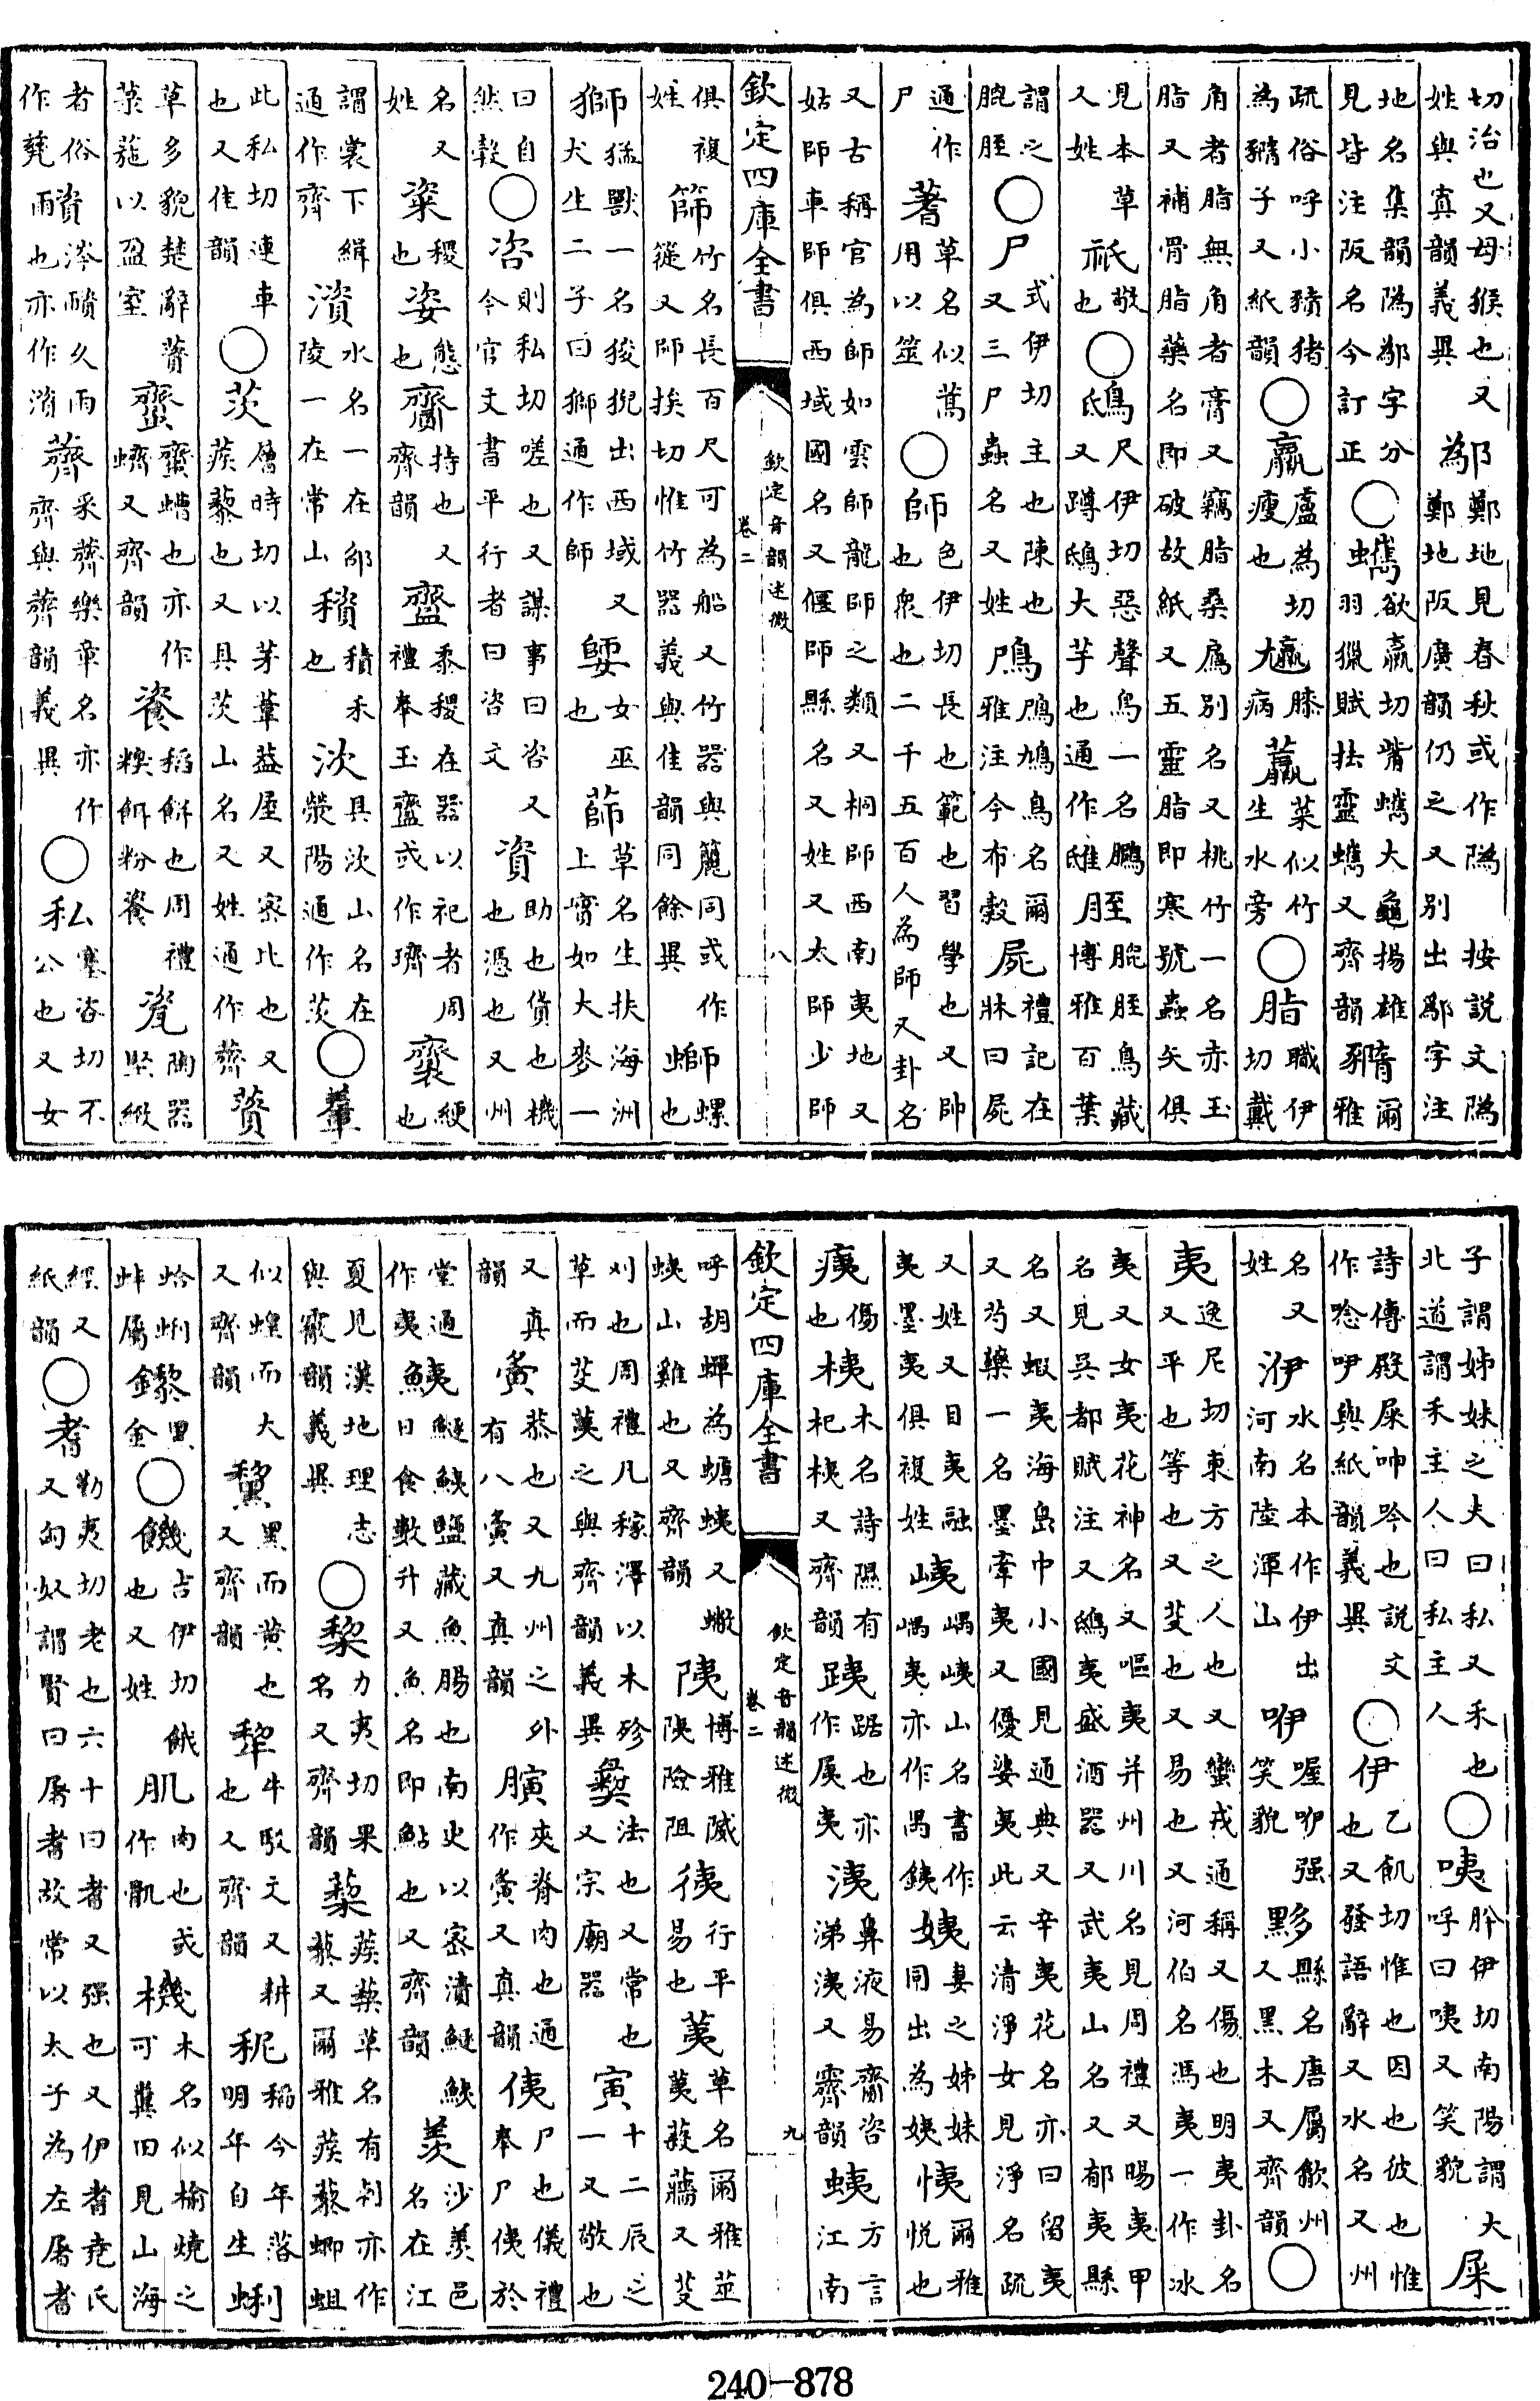 切治也又母猴也又姓與真韻義異鄬鄭地見春秋或作隝按說文隝鄭地阪廣韻仍之又別出鄬字注
地名集韻隝鄬字分見皆注阪名今訂正○蠵欲羸切觜蠵大龜揚雄羽獵賦抾靈蠵又齊韻䝐爾雅
疏俗呼小豶猪為䝐子又紙韻○羸盧為切瘦也膝病菜似竹生水旁○脂職伊切戴
角者脂無角者膏又竊脂桑鳸別名又桃竹一名赤玉脂又補骨脂藥名即破故紙又五靈脂即寒號蟲矢俱
見本草又姓祇敬也○鴟尺伊切惡聲鳥一名鵩又蹲鴟大芋也通作胵膍胵鳥藏博雅百葉
謂之膍胵○尸式伊切主也陳也又三尸蟲名又姓鳲鳲鳩鳥名爾雅注今布穀屍禮記在牀曰屍
通作尸蓍草名似蒿用以筮○師色伊切長也範也習學也又帥也衆也二千五百人為師又卦名
又古稱官為師如雲師龍師之類又桐師西南夷地又姑師車師俱西域國名又偃師縣名又姓又太師少師
欽定四庫全書
欽定音韻述微
卷二
八
俱複姓篩竹名長百尺可為船又竹器與簏同或作簁又師挨切惟竹器義與佳韻同餘異螄螺也
獅猛獸一名狻猊出西域又犬生二子曰獅通作師女巫也蒒草名生扶海洲上實如大麥一
曰自然穀○咨則私切嗟也又謀事曰咨又今官文書平行者曰咨文資助也貨也機也憑也又州
名又姓粢稷也姿態也齎持也又齊韻齍黍稷在器以祀者周禮奉玉齍或作緶也
謂裳下緝通作齊澬水名一在邵陵一在常山積禾也㳄具㳄山名在滎陽通作茨○
此私切連車也又佳韻○茨層時切以茅葦葢屋又密比也又蒺藜也又具茨山名又姓通作薺薋
草多貌楚辭薋菉葹以盈室螬也亦作蠐又齊韻餈稻餅也周禮糗餌粉餈瓷陶器堅緻
者俗作甆涔久雨也亦作薺采薺樂章名亦作齊與薺韻義異○私塞咨切不公也又女
子謂姊妹之夫曰私又禾也北道謂禾主人曰私主人○咦肸伊切南陽謂大呼曰咦又笑貌屎
詩傳殿屎呻吟也說文作唸㕧與紙韻義異○伊乙飢切惟也因也彼也惟也又發語辭又水名又州
名又姓洢水名本作伊出河南陸渾山咿喔咿强笑貌黟縣名唐屬歙州又黑木又齊韻○
夷逸尼切東方之人也又蠻戎通稱又傷也明夷卦名又平也等也又芟也又易也又河伯名馮夷一作冰
夷又女夷花神名又嘔夷并州川名見周禮又暘夷甲名見吳都賦注又鴟夷盛酒器又武夷山名又郁夷縣
名又蝦夷海島中小國見通典又辛夷花名亦曰留夷又芍藥一名墨牽夷又優婆夷此云清淨女見淨名疏
又姓又目夷融夷墨夷俱複姓峓嵎峓山名書作嵎夷亦作禺銕姨妻之姊妹同出為姨悅也爾雅
痍傷也桋木名詩隰有杞桋又齊韻跠踞也亦作㞾夷洟鼻液易齎咨涕洟又霽韻蛦方言江南
欽定四庫全書
欽定音韻述微
卷二
九
呼胡蟬為螗蛦又䗠蛦山雞也又齊韻陦博雅陠險阻侇行平易也荑草名爾雅莁荑蔱蘠又芟
刈也周禮凡稼澤以木殄草而芟荑之與齊韻義異彝法也又常也又宗廟器寅十二辰之一又敬也
又真韻夤恭也又九州之外有八夤又真韻䐶夾脊肉也通作夤又真韻侇尸也儀禮奉尸侇於
堂通作夷鮧鱁鮧鹽藏魚腸也南史以密漬鱁鮧日食數升又魚名即鮎也又齊韻羨沙羨邑名在江
夏見漢地理志與霰韻義異○棃力夷切果名又齊韻蔾蒺蔾草名有刺亦作蒺藜又爾雅蒺藜蝍蛆
似蝗而大又齊韻黧黑而黃也又齊韻犂牛駁文又耕也又齊韻秜稻今年落明年自生蜊
蛤蜊蚌屬鑗黑金○飢居伊切餓也又姓肌肉也或作䏑机木名似榆燒之可糞田見山海
經又紙韻○耆勤夷切老也六十曰耆又强也又伊耆堯氏又匈奴謂賢曰屠耆故常以太子為左屠耆
240-878